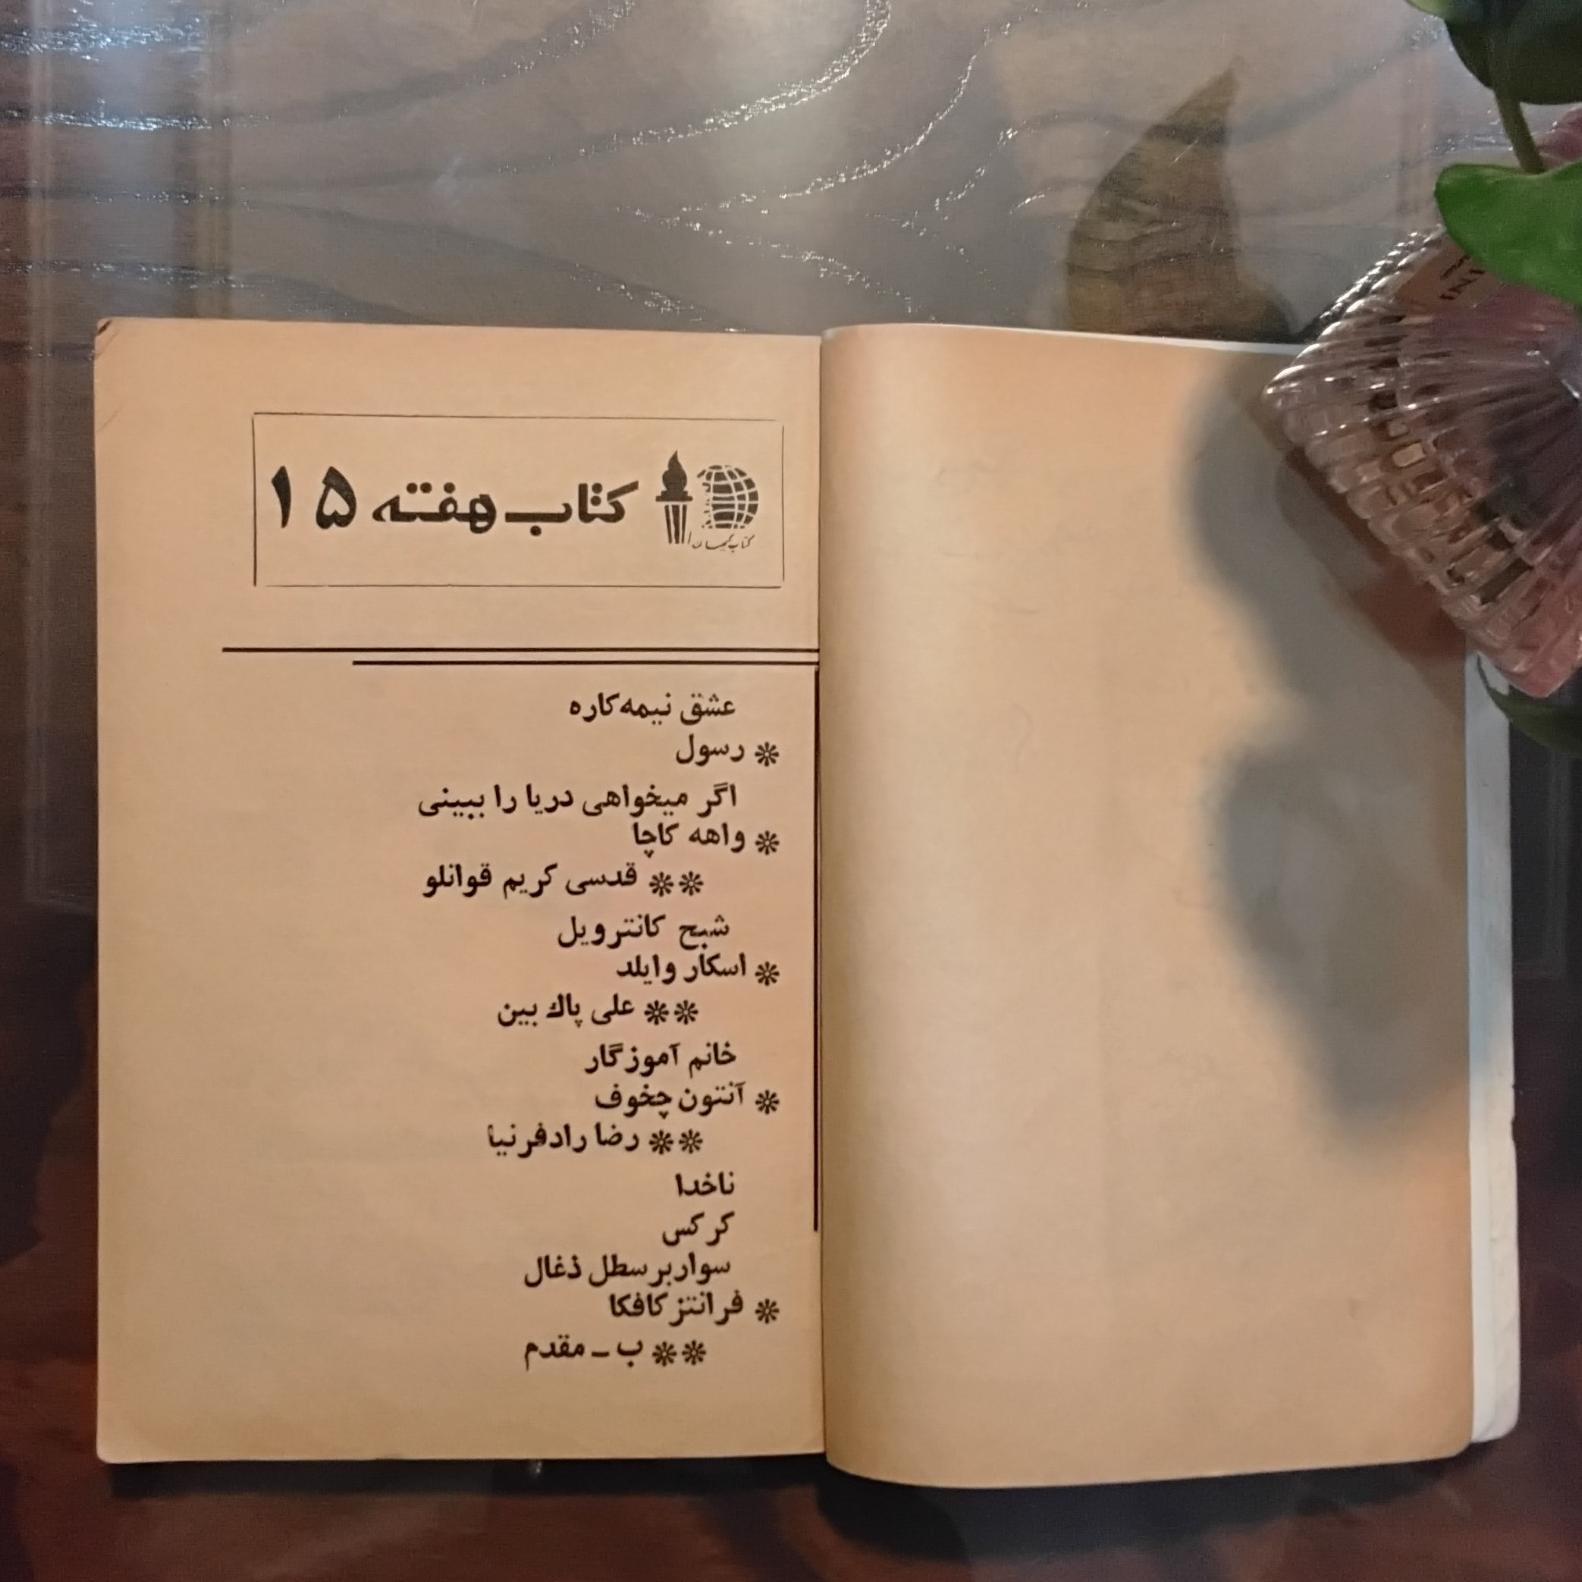 کتاب هفته ۱۵
کتاب کیهان
عشق نیمه‌کاره
❊ رسول
اگر میخواهی دریا را ببینی
❊ واهه کاچا
❊❊ قدسی کریم قوانلو
شبح کانترویل
❊ اسکار وایلد
❊❊ علی پاك بین
خانم آموزگار
❊ آنتون چخوف
❊❊ رضا رادفرنیا
ناخدا
کرکس
سوار بر سطل ذغال
❊ فرانتز کافکا
❊❊ ب ـ مقدم